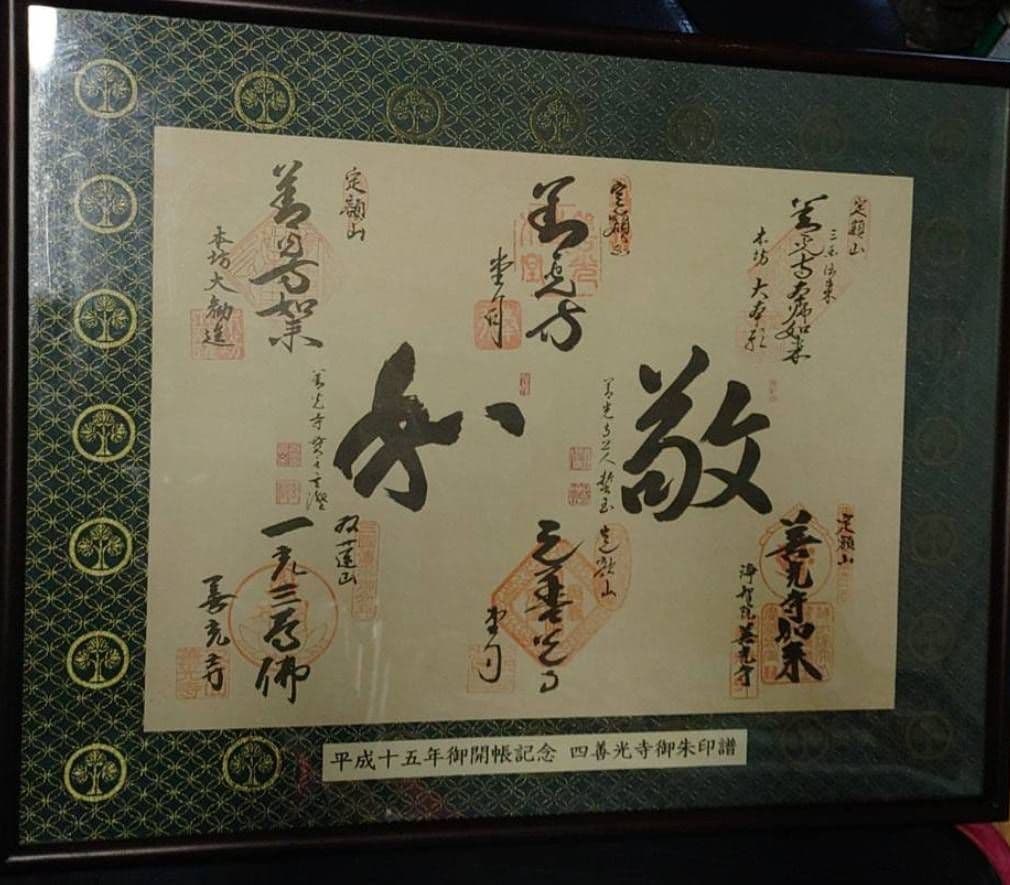 定額山
三国伝来
善光寺本師如来
本坊 大本願
定額山
善光寺
定額山
善光寺如来
本坊大勧進
敬
善光寺上人誓玉
和
定額山
善光寺如来
善光寺
定額山
元善光寺
双蓮山
一光三尊佛
善光寺
平成十五年御開帳記念 四善光寺御朱印譜